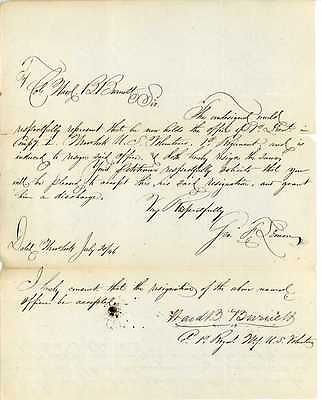 To Col. Ward B. Burnett
Sir
The undersigned would
respectfully represent that he now holds the office of 1st Lieut. in
Compy New York U.S. Volunteers, 1st Regiment and is
induced to resign said office, & doth hereby resign the same,
Your Petitioner respectfully solicits that you
will be pleased to accept this his said resignation, and grant
him a discharge.
Very Respectfully
Geo.
Dated New York July 30/46
I hereby consent that the resignation of the above named
officer be accepted
Ward B. Burnett
1st Regmt U.S. Volunteers